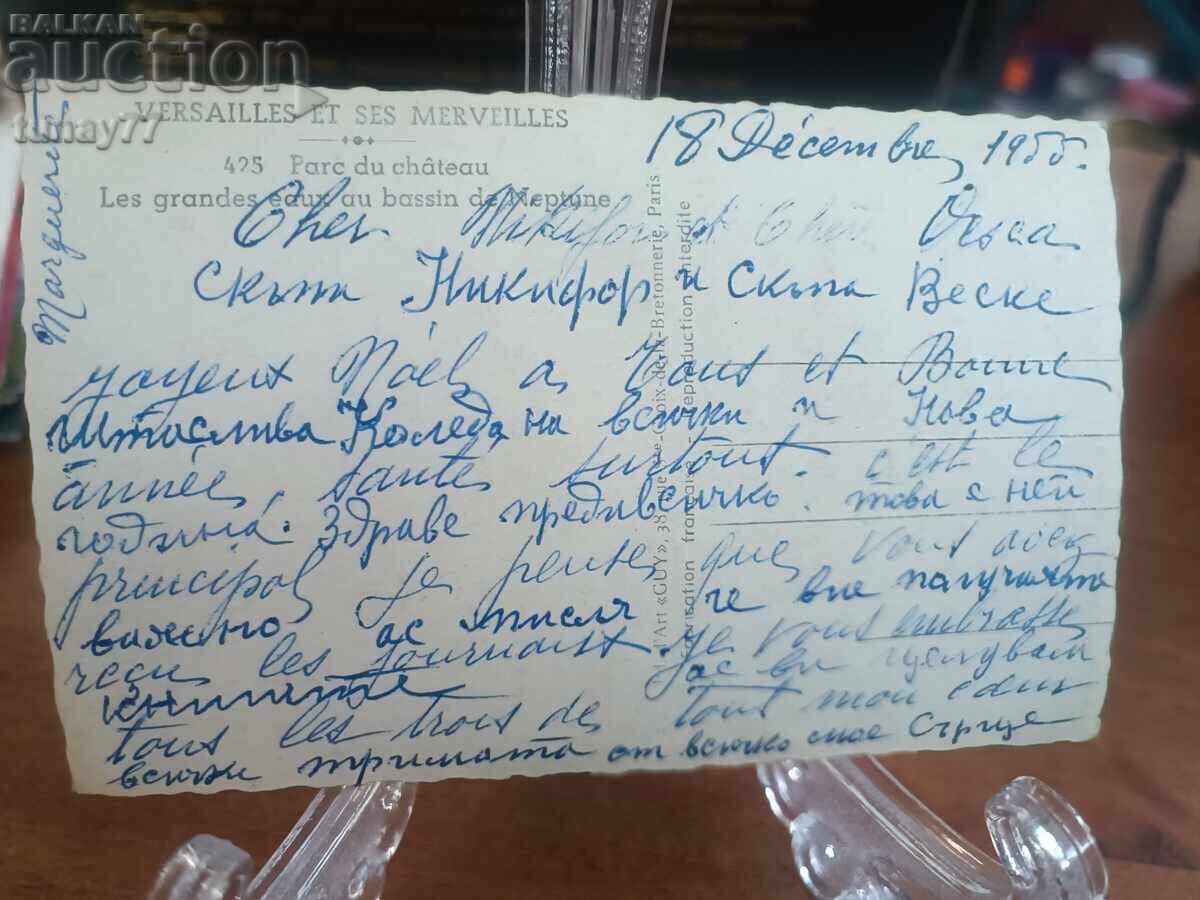 BALKAN
auction
tumay77
VERSAILLES ET SES MERVEILLES
425 Parc du château
Les grandes eaux au bassin de Neptune
18 Décembre, 1955.
Cher Nikifor et Chère
скъпи Никифор и скъпа Веске
Joyeux Noël a Tous et Bonne
Щтослива Коледа, на всички и Нова
année, santé surtout. c'est le
година. Здраве предивсичко. това е ней
principal je pense que vous avez
важно ас мисля че вие получихте
reçu les Je vous embrasse
книгите ас ви целувам
tous les trois de tout mon cœur
всички тримата от всичко мое Сърце
Marguerite
d'Art «GUY», 38, Bretonnerie, Paris
Reproduction interdite